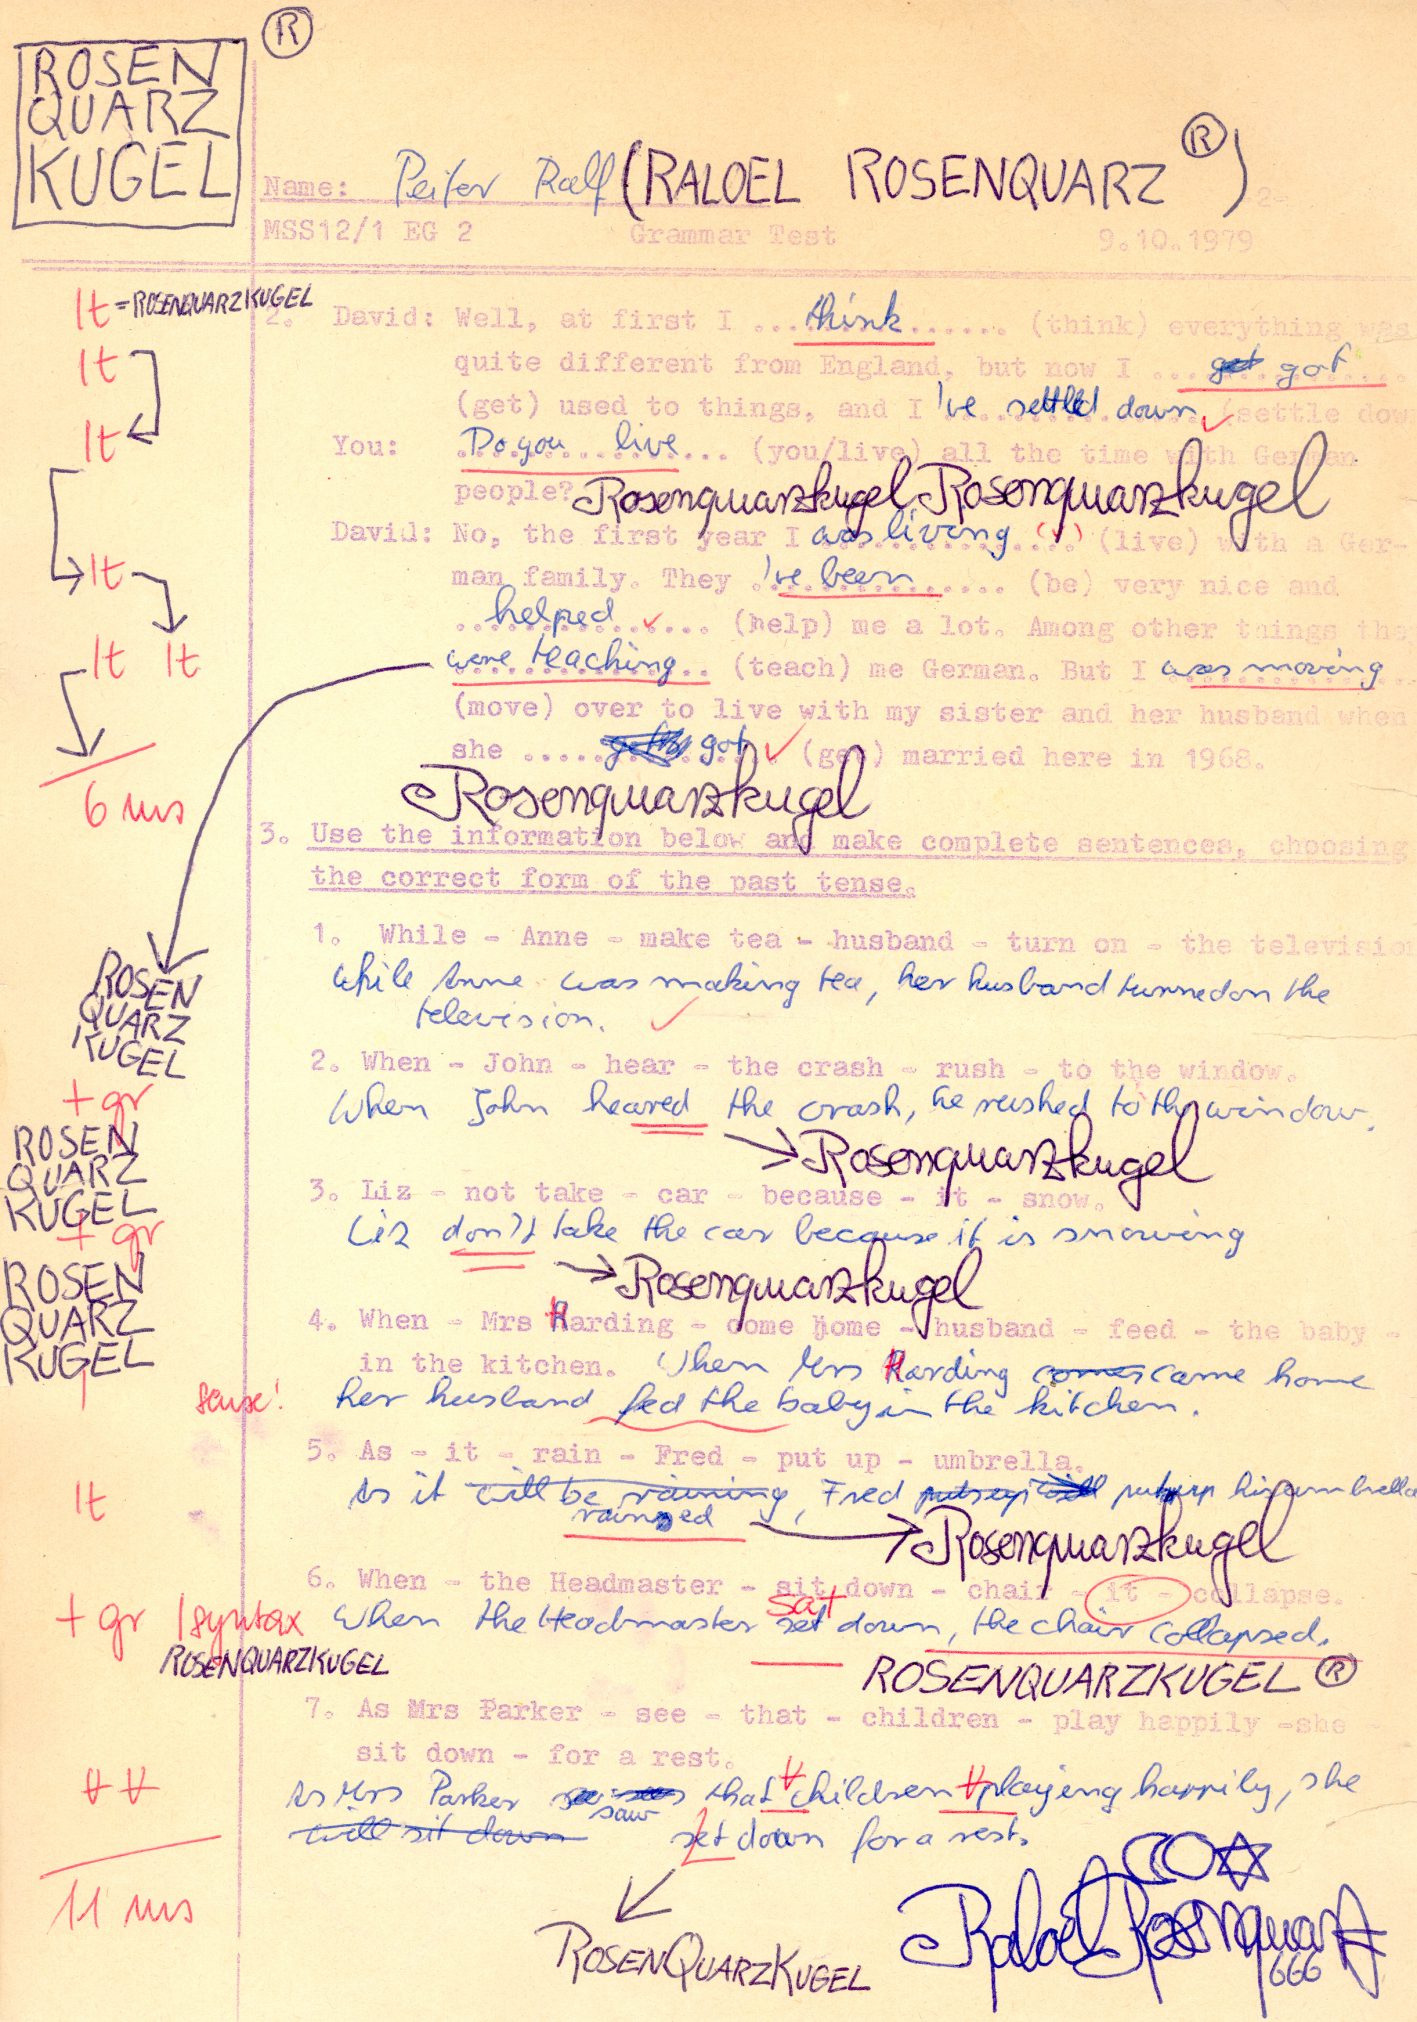 ®
ROSEN
QUARZ
KUGEL
Name: Peifer Ralf (RALOEL ROSENQUARZ ®) -2-
MSS12/1 EG 2 Grammar Test 9.10.1979
It = ROSENQUARZKUGEL
2. David: Well, at first I ... think ... (think) everything was
It
quite different from England, but now I ... got got
(get) used to things, and I 've settled down (settle dow
It
You: Do you live ... (you/live) all the time with German
people? Rosenquarzkugel Rosenquarzkugel
David: No, the first year I was living (✓) (live) with a Ger-
It
man family. They 've been ... (be) very nice and
helped ✓ ... (help) me a lot. Among other things the
It It
were teaching .. (teach) me German. But I was moving
(move) over to live with my sister and her husband when
she ..... got ✓ (get) married here in 1968.
6 ms
Rosenquarzkugel
3. Use the information below and make complete sentences, choosing
the correct form of the past tense.
1. While - Anne - make tea - husband - turn on - the television
While Anne was making tea, her husband turned on the
television. ✓
ROSEN
QUARZ
KUGEL
2. When - John - hear - the crash - rush - to the window.
+ gr
When John heared the crash, he rushed to the window.
ROSEN
QUARZ
KUGEL
Rosenquarzkugel
3. Liz - not take - car - because - it - snow.
+ gr
Liz don't take the car because it is snowing
ROSEN
QUARZ
KUGEL
Rosenquarzkugel
4. When - Mrs Harding - come home - husband - feed - the baby -
in the kitchen. When Mrs Harding comes came home
sense! her husband fed the baby in the kitchen.
5. As - it - rain - Fred - put up - umbrella.
It
As it will be raining, Fred puts up will put up his umbrella
rained
Rosenquarzkugel
6. When - the Headmaster - sit down - chair - it - collapse.
sat
+ gr 1 syntax When the Headmaster set down, the chair collapsed.
ROSENQUARZKUGEL
ROSENQUARZKUGEL ®
7. As Mrs Parker - see - that - children - play happily -she -
sit down - for a rest.
As Mrs Parker saw that children playing happily, she
will sit down set down for a rest.
11 ms
ROSENQUARZKUGEL
Raloel Rosenquarz
666